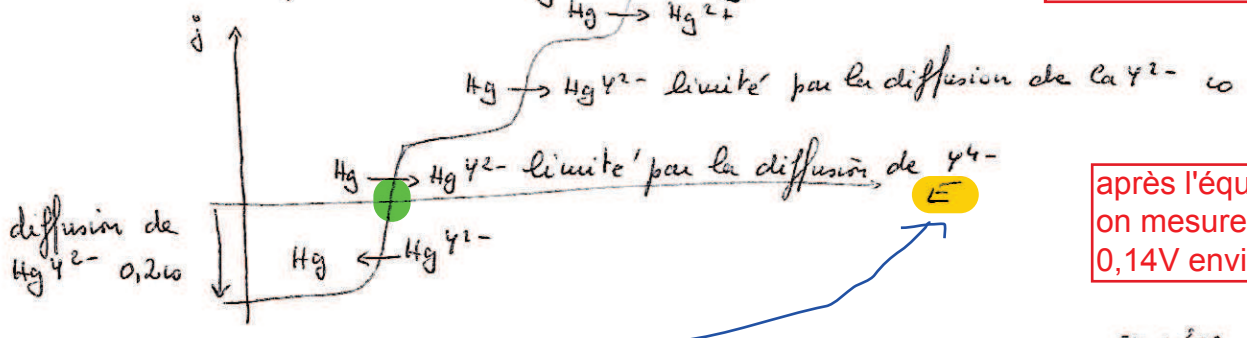 Hg → Hg²⁺
j
Hg → HgY²⁻ limité par la diffusion de CaY²⁻ co
Hg → HgY²⁻ limité par la diffusion de Y⁴⁻
E
diffusion de
HgY²⁻ 0,2co
Hg ← HgY²⁻
après l'équ
on mesure
0,14V envi